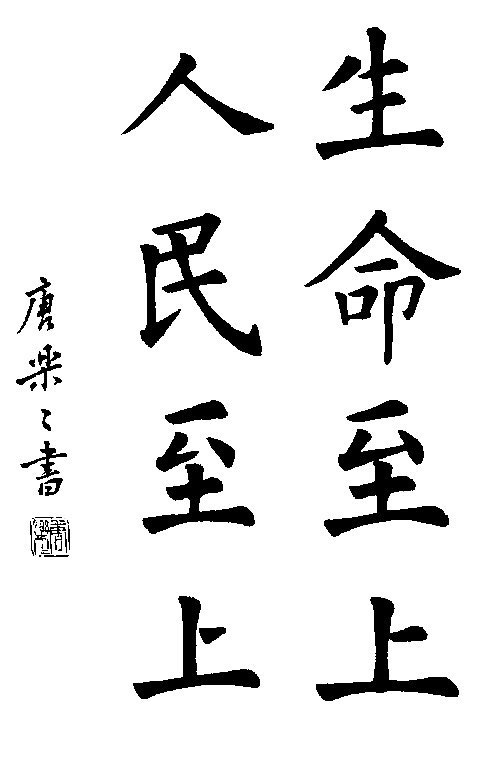 生命至上
人民至上
唐樂〻書